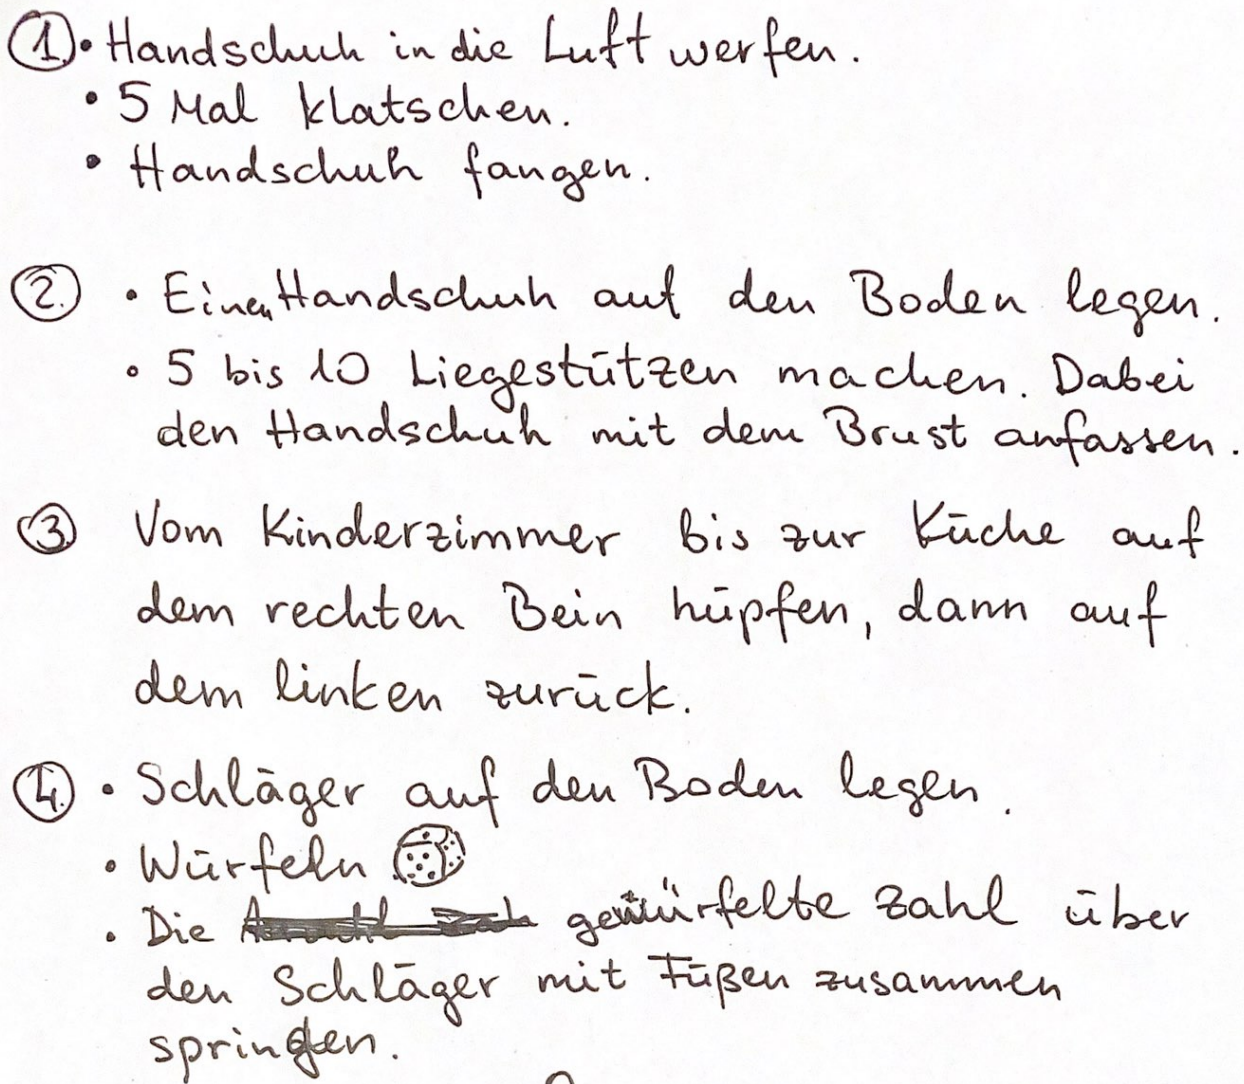 1. • Handschuh in die Luft werfen.
• 5 Mal klatschen.
• Handschuh fangen.
2. • Einen Handschuh auf den Boden legen.
• 5 bis 10 Liegestützen machen. Dabei
den Handschuh mit dem Brust anfassen.
3 Vom Kinderzimmer bis zur Küche auf
dem rechten Bein hüpfen, dann auf
dem linken zurück.
4. • Schläger auf den Boden legen.
• Würfeln
• Die gewürfelte Zahl über
den Schläger mit Füßen zusammen
springen.